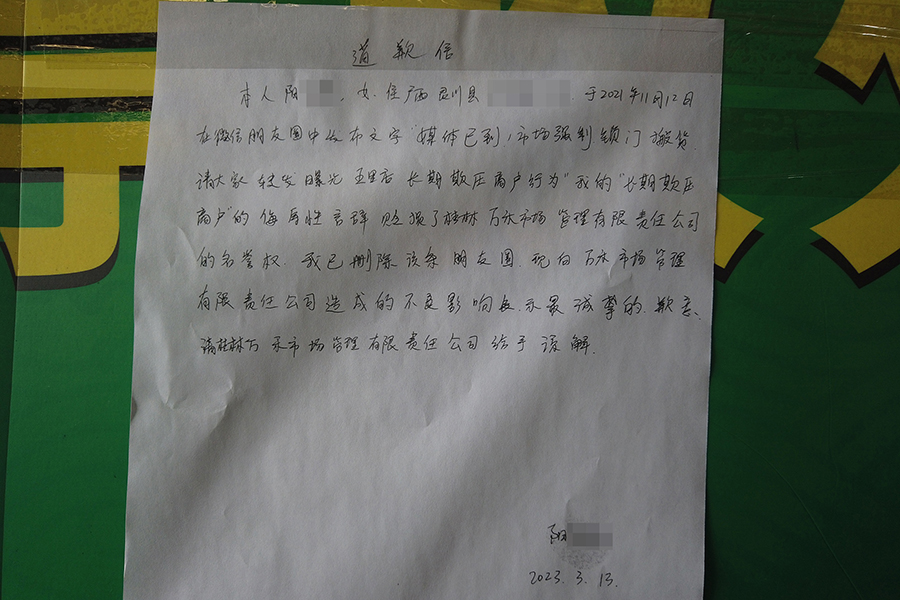 道歉信
本人阳，女，住广西灵川县 于2021年11月12日
在微信朋友圈中发布文字"媒体已到，市场强制锁门搬货
请大家转发曝光五里店长期欺压商户行为"我的"长期欺压
商户"的侮辱性言辞贬损了桂林万禾市场管理有限责任公司
的名誉权.我已删除该条朋友圈.现向万禾市场管理
有限责任公司造成的不良影响表示最诚挚的歉意.
请桂林万禾市场管理有限责任公司给予谅解.
阳
2023.3.13.